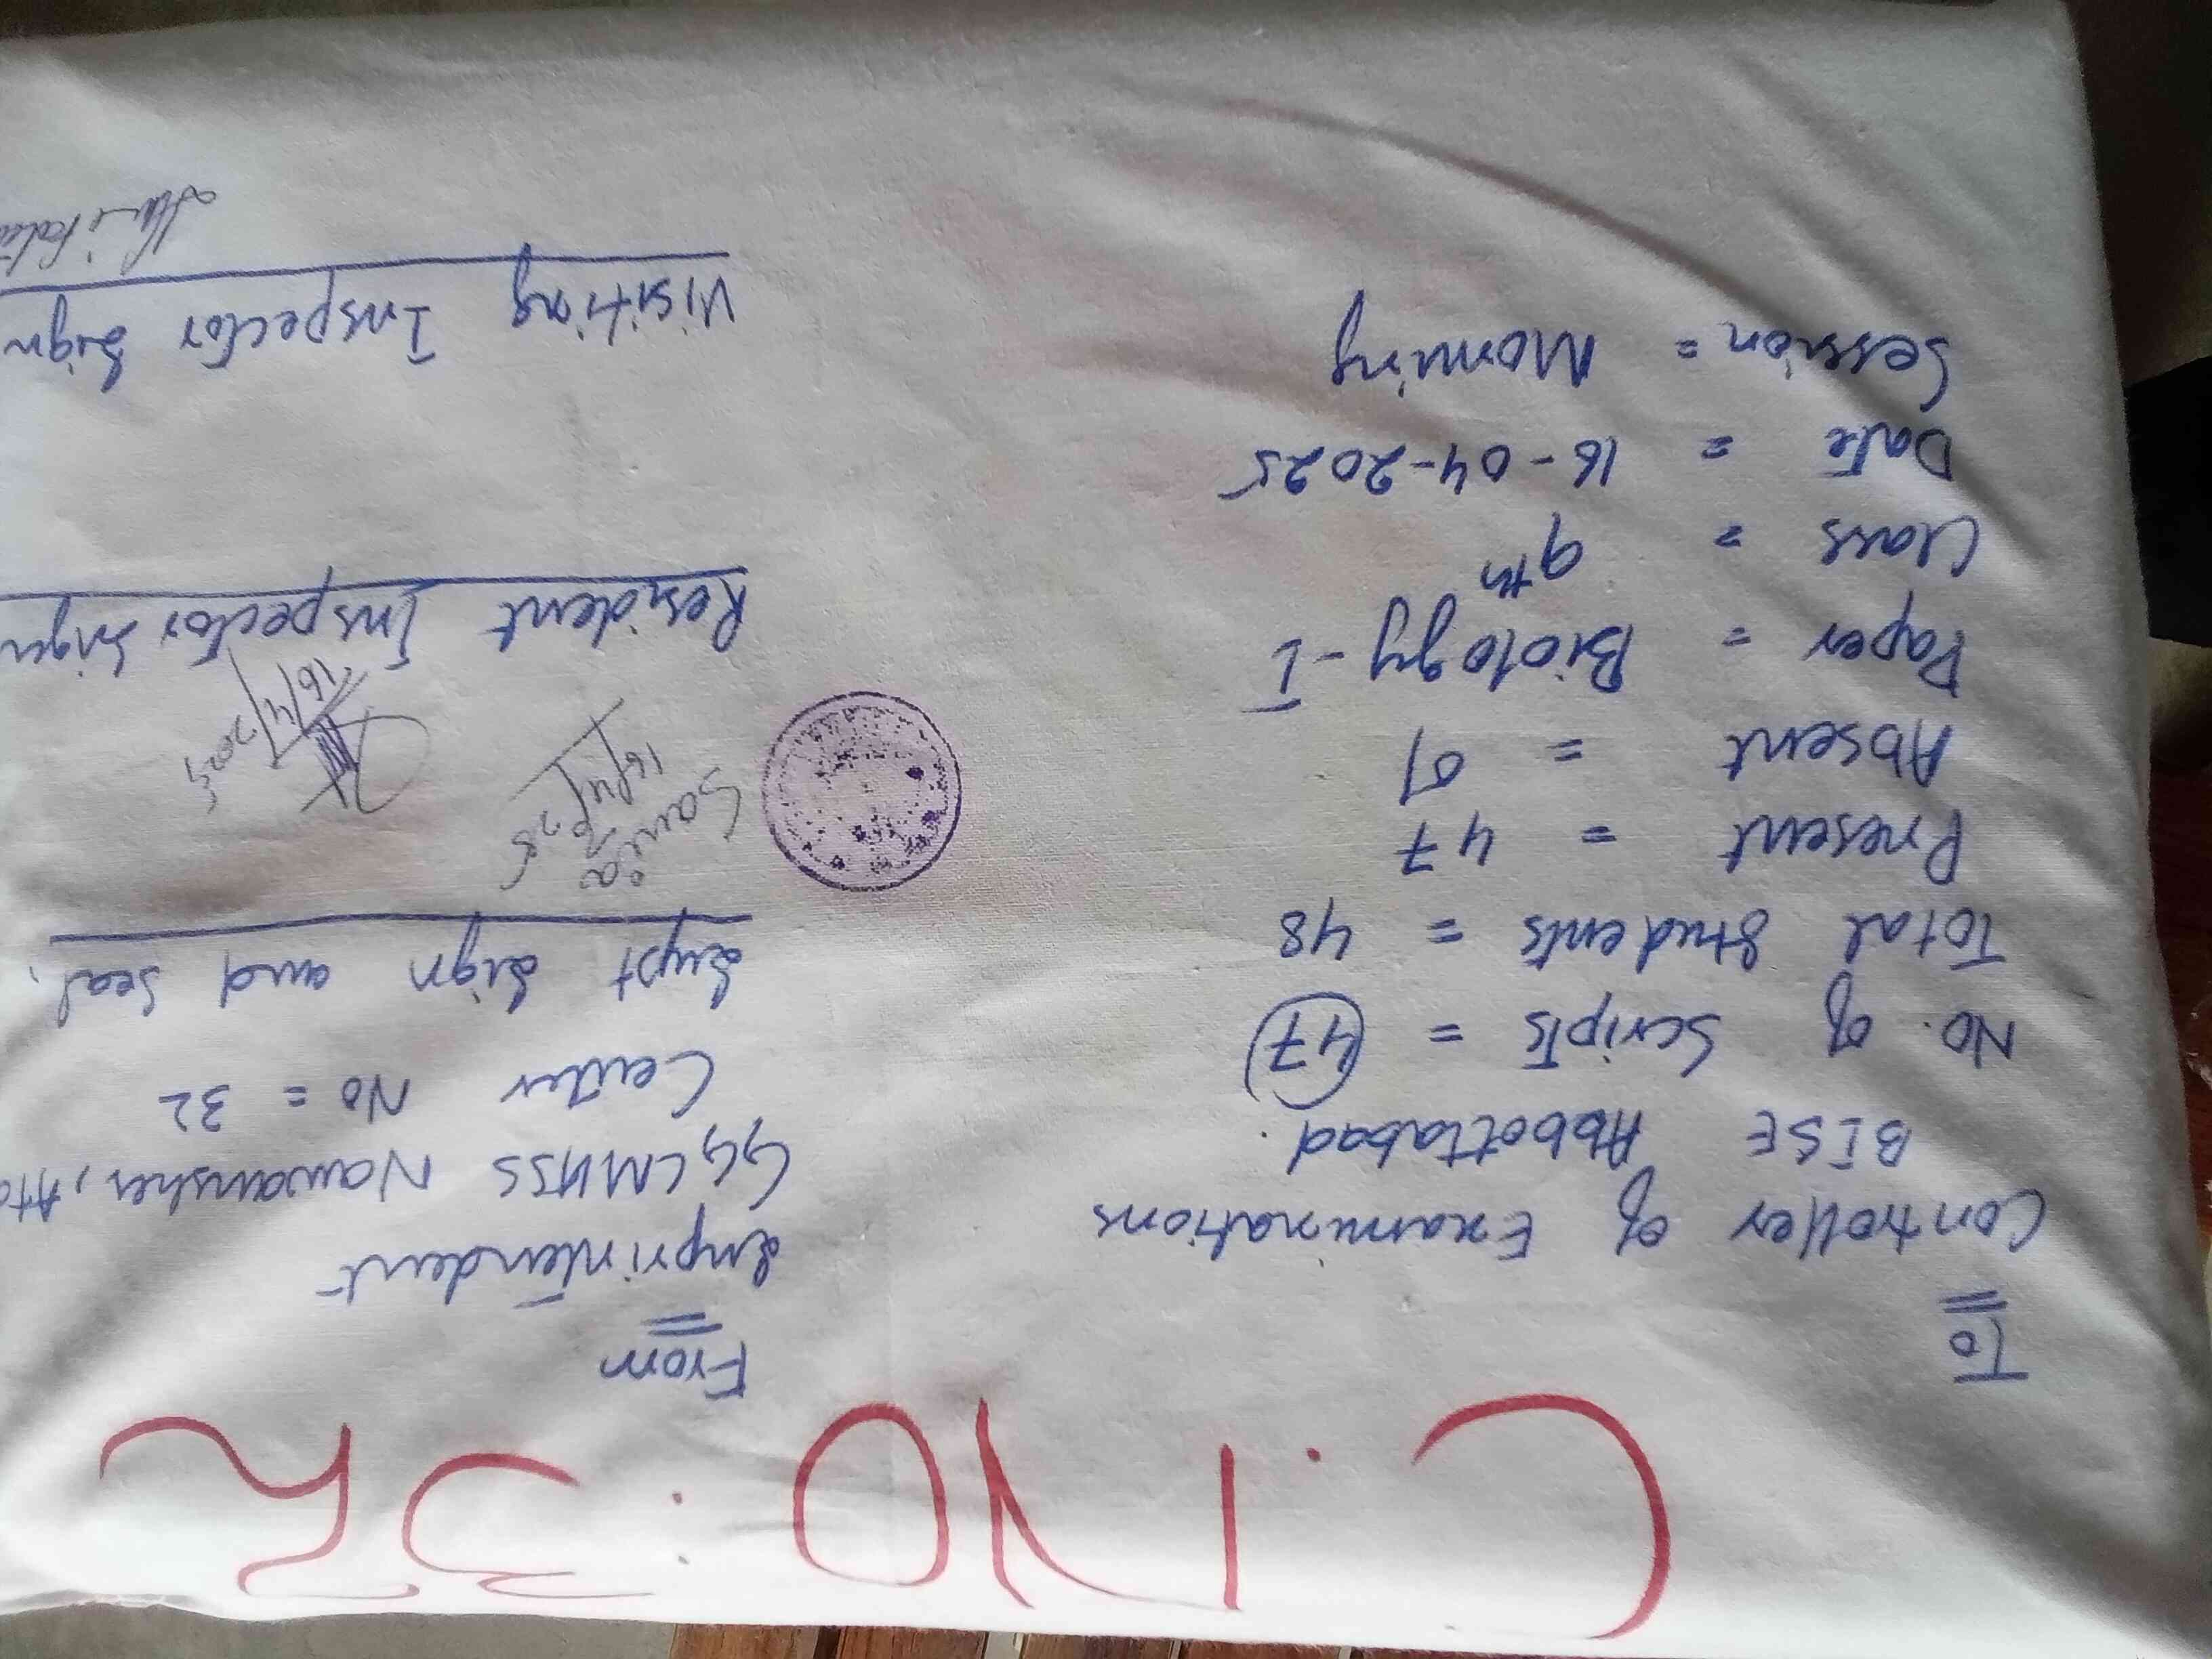 C.NO:32
To
Controller of Examinations
BISE Abbottabad.
No. of Scripts = 47
Total Students = 48
Present = 47
Absent = 01
Paper = Biology-I
Class = 9th
Date = 16-04-2025
Session = Morning
From
Suprintendent
GGCMHSS Nawansher, Atd
Center No = 32
Supt Sign and Seal.
Sania
16/04/25
16/4/2025
Resident Inspector Sign
Visiting Inspector Sign